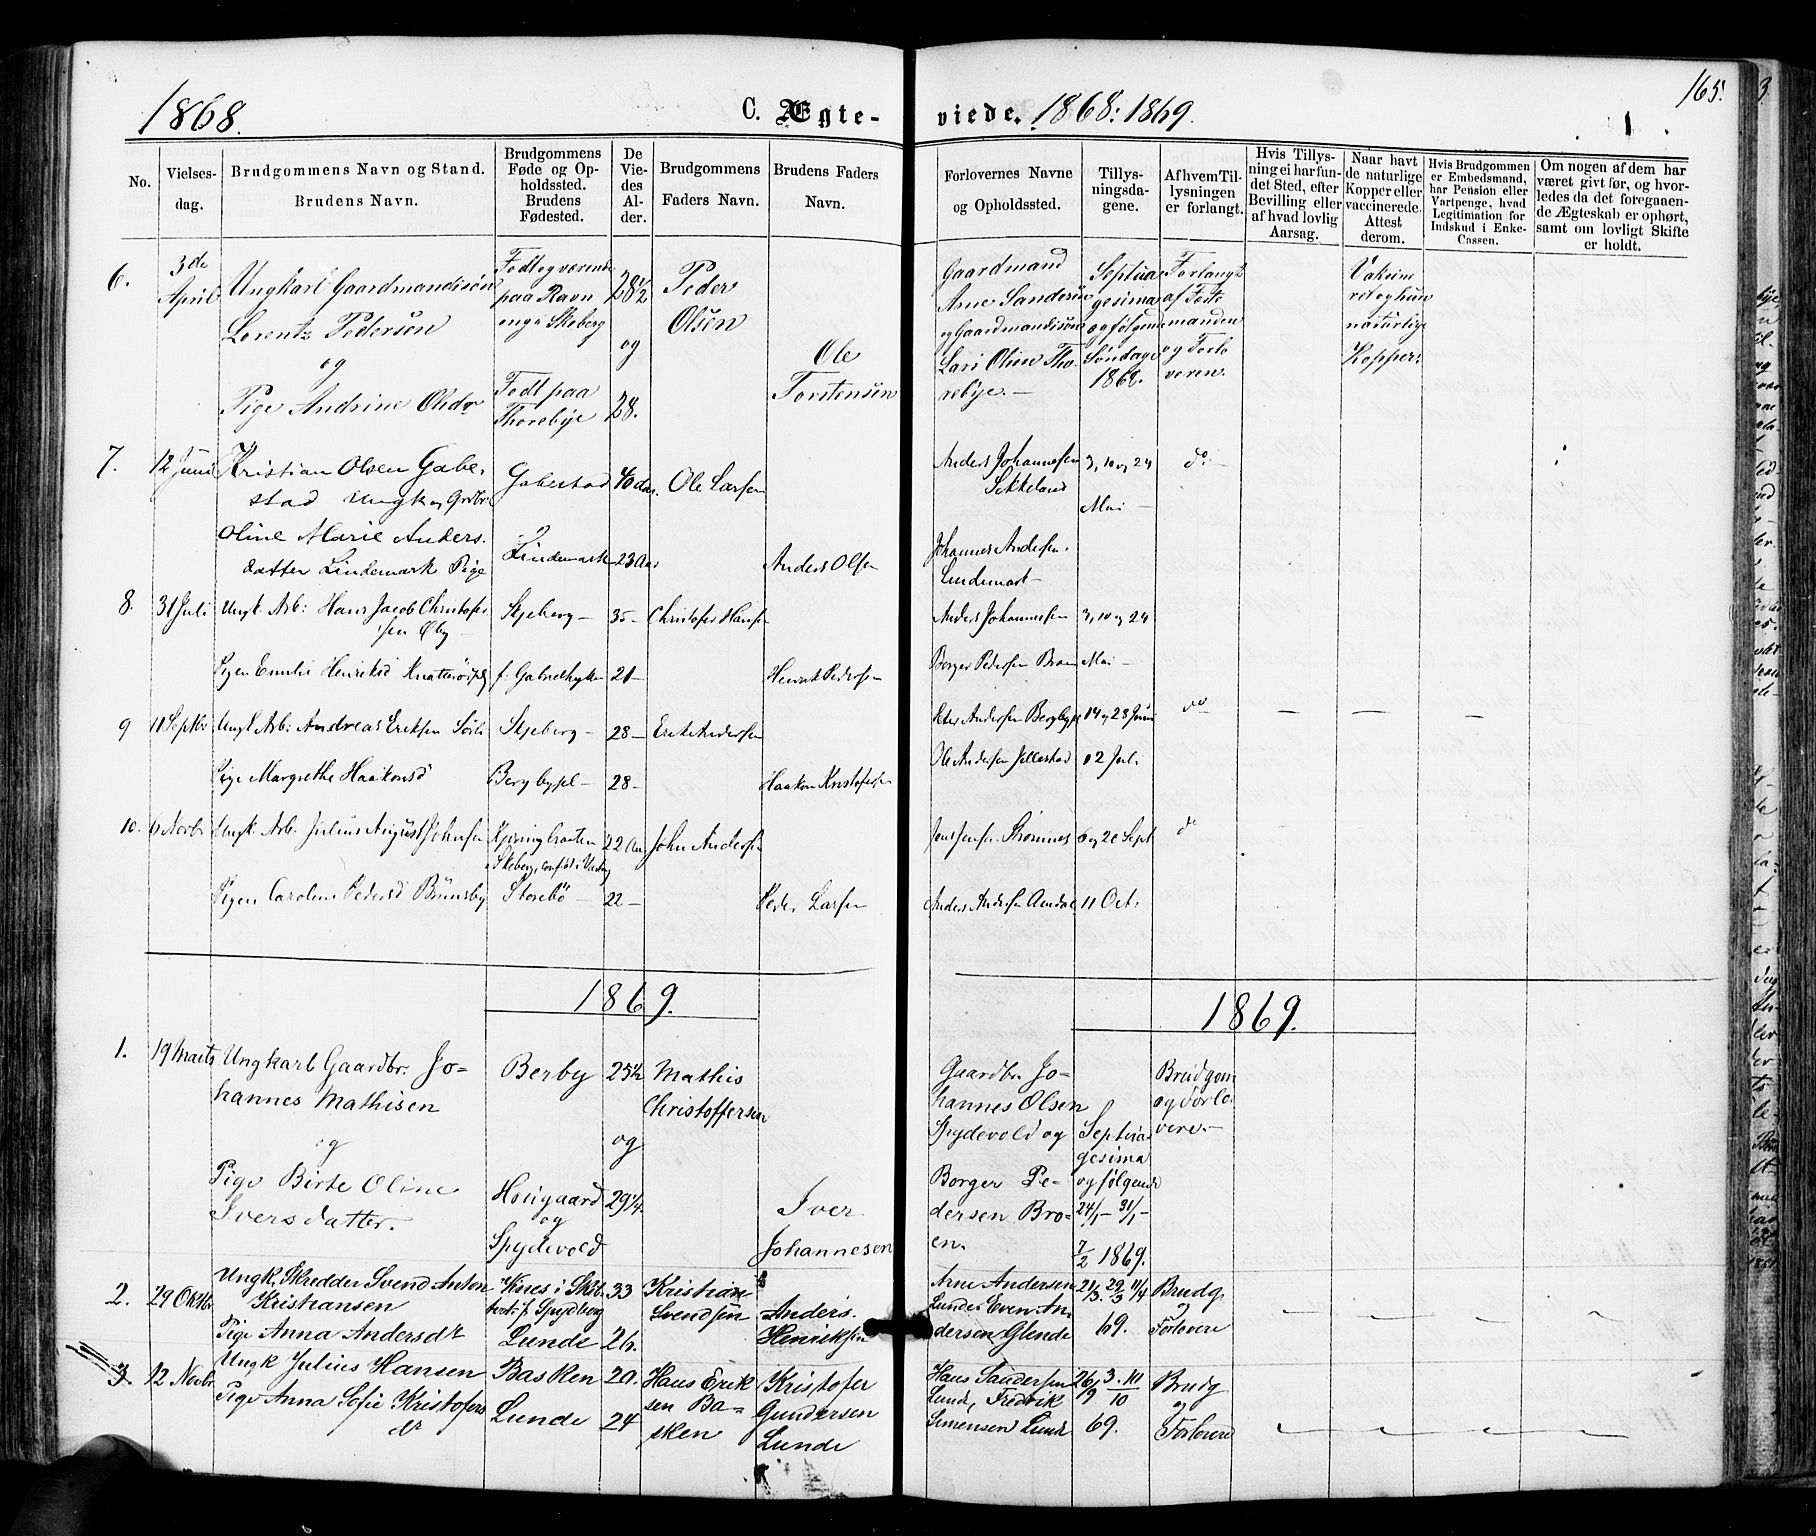 165.
1868.
C. Ægte-
viede. 1868: 1869.
No.
Vielses-
dag.
Brudgommens Navn og Stand.
Brudens Navn.
Brudgommens
Føde og Op-
holdssted.
Brudens
Fødested.
De
Vie-
des
Al-
der.
Brudgommens
Faders Navn.
Brudens Faders
Navn.
Forlovernes Navne
og Opholdssted.
Tillys-
ningsda-
gene.
Af hvem Til-
lysningen
er forlangt.
Hvis Tillys-
ning ei har fun-
det Sted, efter
Bevilling eller
af hvad lovlig
Aarsag.
Naar havt
de naturlige
Kopper eller
vaccinerede.
Attest
derom.
Hvis Brudgommen
er Embedsmand,
har Pension eller
Vartpenge, hvad
Legitimation for
Indskud i Enke-
Cassen.
Om nogen af dem har
været givt før, og hvor-
ledes da det foregaaen-
de Ægteskab er ophørt,
samt om lovligt Skifte
er holdt.
6.
3de
April
Ungkarl Gaardmandssøn
Lorentz Pedersen
og
Pige Andrine Olsdr
Født og værende
paa Ravn
eng i Skeberg
Født paa
Thorebye
28½
og
28.
Peder
Olsen
Ole
Torstensen
Gaardmand
Arne Sandersen
og Gaardmandssøn
Lars Olsen Tho-
rebye.
Septua
gesima
og følgende
Søndage
1868.
Forlangt
af Feste
manden
og Forlo
veren.
Vaksine
ret og hun
naturlige
Kopper.
7.
12 Juni
Kristian Olsen Gabe-
stad Ungk og Grdbr.
Oline Marie Anders-
datter Lindemark Pige
Gabestad
Lindemark
40 Aar.
23 Aar
Ole Larsen
Anders Olsen
Anders Johannesen
Sikkeland
Johannes Andersen.
Lindemark
3, 10 og 24
Mai
do
8.
31 Juli
Ungk. Arb: Hans Jacob Christofer
sen Øby
Pigen Emilie Henriksd
Skjeberg
35
21
Christofer Hansen
Henrik Pedersen
Anders Johannesen
Borger Pedersen Broen
3, 10 og 24
Mai
9
11 Septbr
Ungk Arb: Andreas Eriksen Sørli
Pige Margrethe Haakonsd
Skjeberg
Bergbygd
28
28
Erik Andersen
Haakon Kristofersen
Peter Andersen Bergbygd
Ole Andersen Jellestad
14 og 28 Juni
o 2 Juli
do
10.
6 Novbr
Ungk. Arb. Julius August Johnsen
Pigen Caroline Pedersd Brunsby
Storebö
22 Aar
22
John Andersen
Peder Larsen
Jens Jensen Strømnes
Anders Andersen Amdal
6 og 20 Sept
11 Oct.
do
1869.
1869.
1.
19 Marts
Ungkarl Gaardbr. Jo-
hannes Mathisen
og
Pige Birte Oline
Iversdatter.
Berby
Hougaard
og
Spydevold
25½
og
29¼
Mathis
Christoffersen
Iver
Johannesen
Gaardbr. Jo-
hannes Olsen
Spydevold og
Borger Pe-
dersen Bro-
en.
Septua-
gesima
og følgende
24/1 - 31/1 -
7/2 1869.
Brudgom
og Forlo
vere.
2.
29 Oktbr
Ungk. Skredder Svend Anton
Kristiansen
Pige Anna Andersdr
Lunde
33
26.
Kristian
Svendsen
Anders
Henriksen
Arne Andersen
Lunde, Even An-
dersen Glende
21/3. 29/3 11/4
69.
Brudg
og
Forlovere
3.
12 Novbr
Ungk Julius Hansen
Pige Anna Sofie Kristofers
dr
Basken
Lunde
20.
24
Hans Erik
sen Ba-
sken
Kristofer
Gundersen
Lunde
Hans Sandersen
Lund, Fredrik
Simensen Lund
26/9 3.10/10
69.
Brudg
og
Forlovere